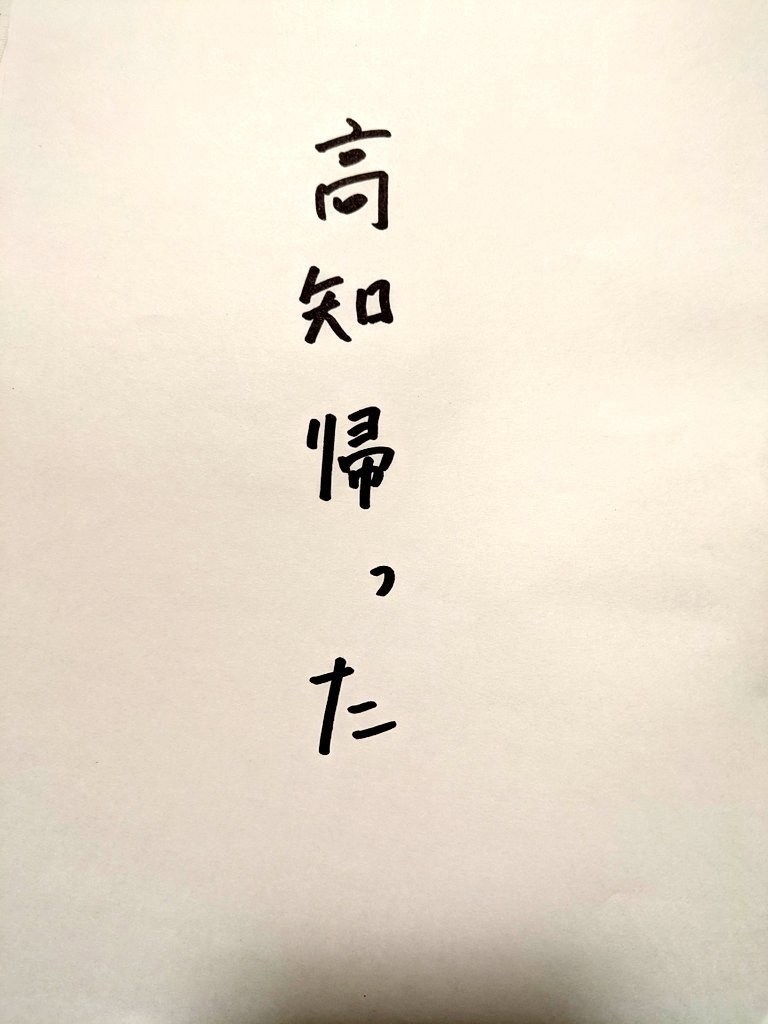 高知帰った